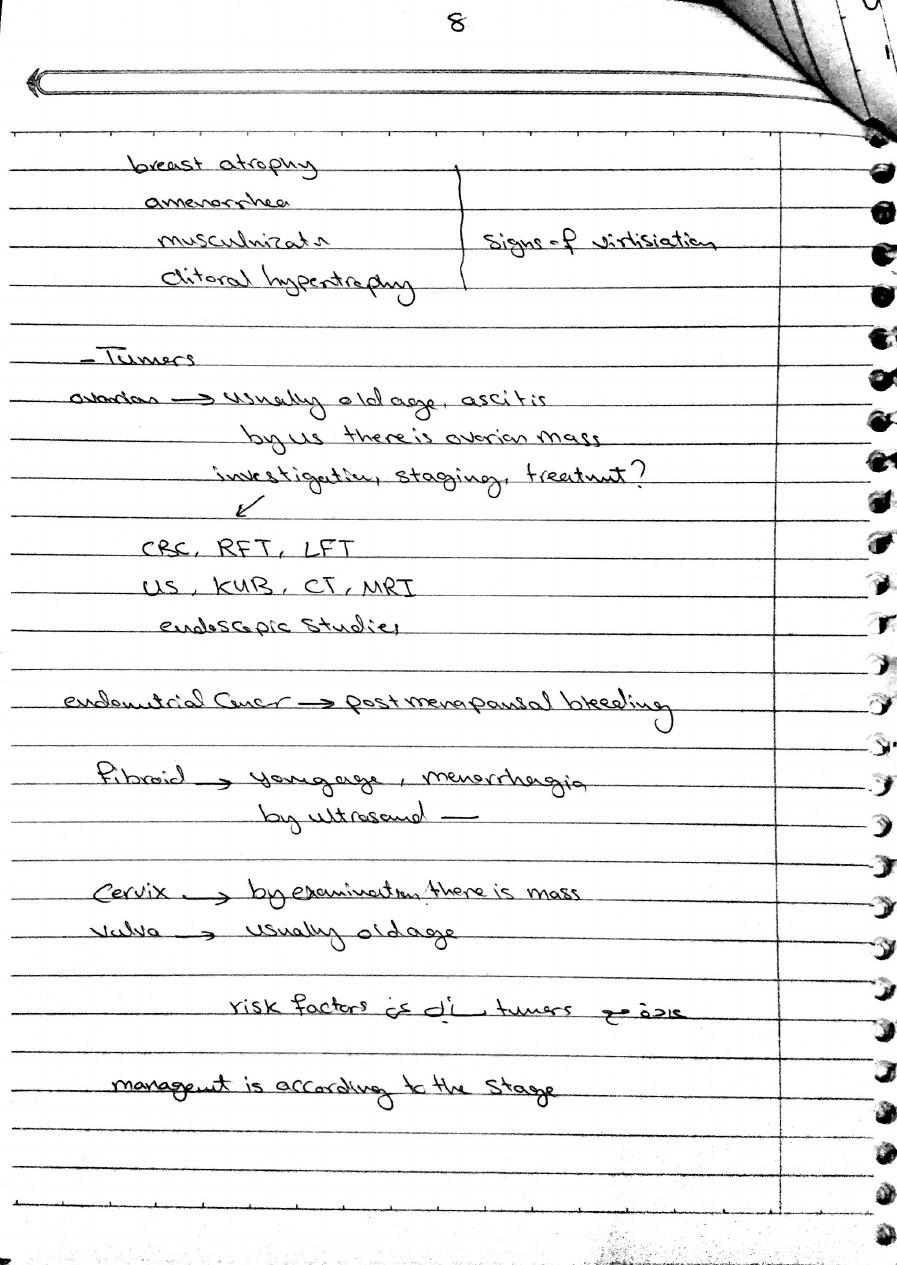 8
breast atrophy
amenorrhea
musculnizatn
clitoral hypertraphy
signs of virlisiation
- Tumers
ovarian → usually old age, ascitis
by us there is ovarian mass
investigation, staging, treatmnt?
↙
CBC, RFT, LFT
US, KUB, CT, MRI
endoscopic studies
endometrial Cancr → post menapausal bleeding
fibroid → young age, menorrhagia
by ultrasound —
Cervix → by examination there is mass
Vulva → usually old age
عادة مع tumers يسأل عن risk factors
managemt is according to the stage